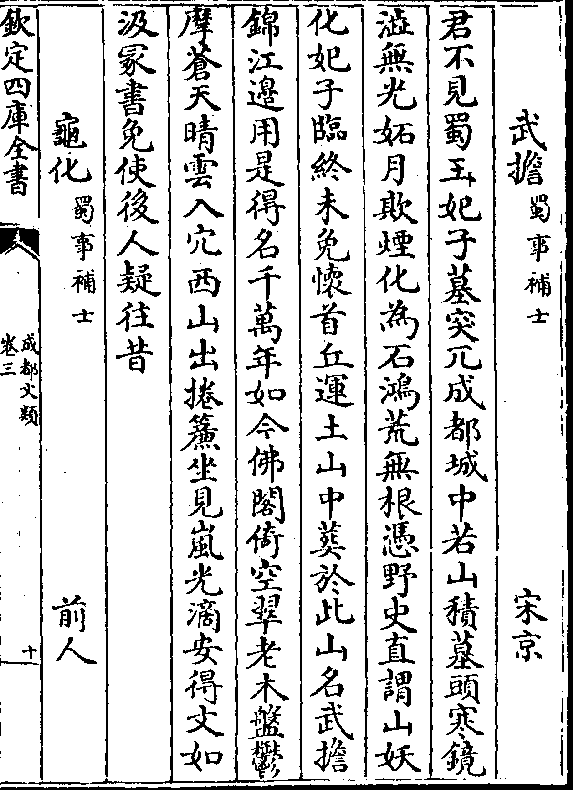 武擔蜀事補士 宋京
君不見蜀王妃子墓突兀成都城中若山積墓頭寒鏡
澁無光妬月欺煙化為石鴻荒無根憑野史直謂山妖
化妃子臨終未免懷首丘運土山中葬於此山名武擔
錦江邉用是得名千萬年如今佛閣倚空翠老木盤鬱
摩蒼天晴雲入穴西山出捲簾坐見嵐光滴安得文如
汲冢書免使後人疑往昔
龜化蜀事補士 前人
欽定四庫全書
成都文類
卷三
十